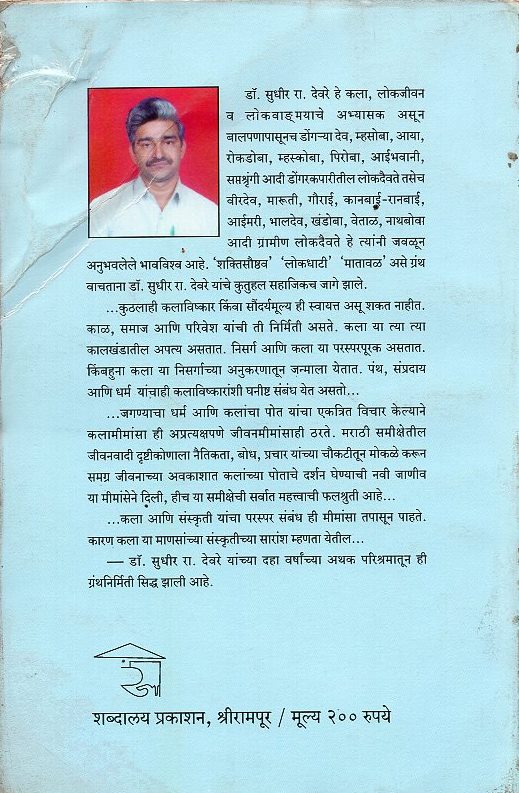 डॉ. सुधीर रा. देवरे हे कला, लोकजीवन
व लोकवाङ्मयाचे अभ्यासक असून
बालपणापासूनच डोंगऱ्या देव, म्हसोबा, आया,
रोकडोबा, म्हस्कोबा, पिरोबा, आईभवानी,
सप्तश्रृंगी आदी डोंगरकपारीतील लोकदैवते तसेच
वीरदेव, मारूती, गौराई, कानबाई-रानबाई,
आईमरी, भालदेव, खंडोबा, वेताळ, नाथबोवा
आदी ग्रामीण लोकदैवते हे त्यांनी जवळून
अनुभवलेले भावविश्व आहे. ‘शक्तिसौष्ठव’ ‘लोकधाटी’ ‘मातावळ’ असे ग्रंथ
वाचताना डॉ. सुधीर रा. देवरे यांचे कुतुहल सहाजिकच जागे झाले.
...कुठलाही कलाविष्कार किंवा सौंदर्यमूल्य ही स्वायत्त असू शकत नाहीत.
काळ, समाज आणि परिवेश यांची ती निर्मिती असते. कला या त्या त्या
कालखंडातील अपत्य असतात. निसर्ग आणि कला या परस्परपूरक असतात.
किंबहुना कला या निसर्गाच्या अनुकरणातून जन्माला येतात. पंथ, संप्रदाय
आणि धर्म यांचाही कलाविष्कारांशी घनीष्ट संबंध येत असतो...
...जगण्याचा धर्म आणि कलांचा पोत यांचा एकत्रित विचार केल्याने
कलामीमांसा ही अप्रत्यक्षपणे जीवनमीमांसाही ठरते. मराठी समीक्षेतील
जीवनवादी दृष्टीकोणाला नैतिकता, बोध, प्रचार यांच्या चौकटीतून मोकळे करून
समग्र जीवनाच्या अवकाशात कलांच्या पोताचे दर्शन घेण्याची नवी जाणीव
या मीमांसेने दिली, हीच या समीक्षेची सर्वात महत्त्वाची फलश्रुती आहे...
...कला आणि संस्कृती यांचा परस्पर संबंध ही मीमांसा तपासून पाहते.
कारण कला या माणसांच्या संस्कृतीच्या सारांश म्हणता येतील...
— डॉ. सुधीर रा. देवरे यांच्या दहा वर्षांच्या अथक परिश्रमातून ही
ग्रंथनिर्मिती सिद्ध झाली आहे.
शब्दालय प्रकाशन, श्रीरामपूर / मूल्य २०० रुपये